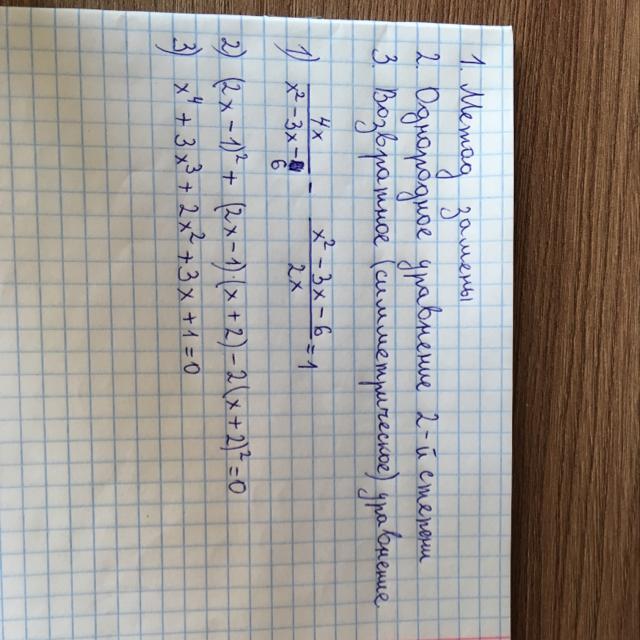 1. Метод замены
2. Однородное уравнение 2-й степени
3 Возвратное (симметрическое) уравнение
1) 4x/(x² - 3x - 6) - (x² - 3x - 6)/2x = 1
2) (2x - 1)² + (2x - 1)·(x + 2) - 2(x + 2)² = 0
3) x⁴ + 3x³ + 2x² + 3x + 1 = 0